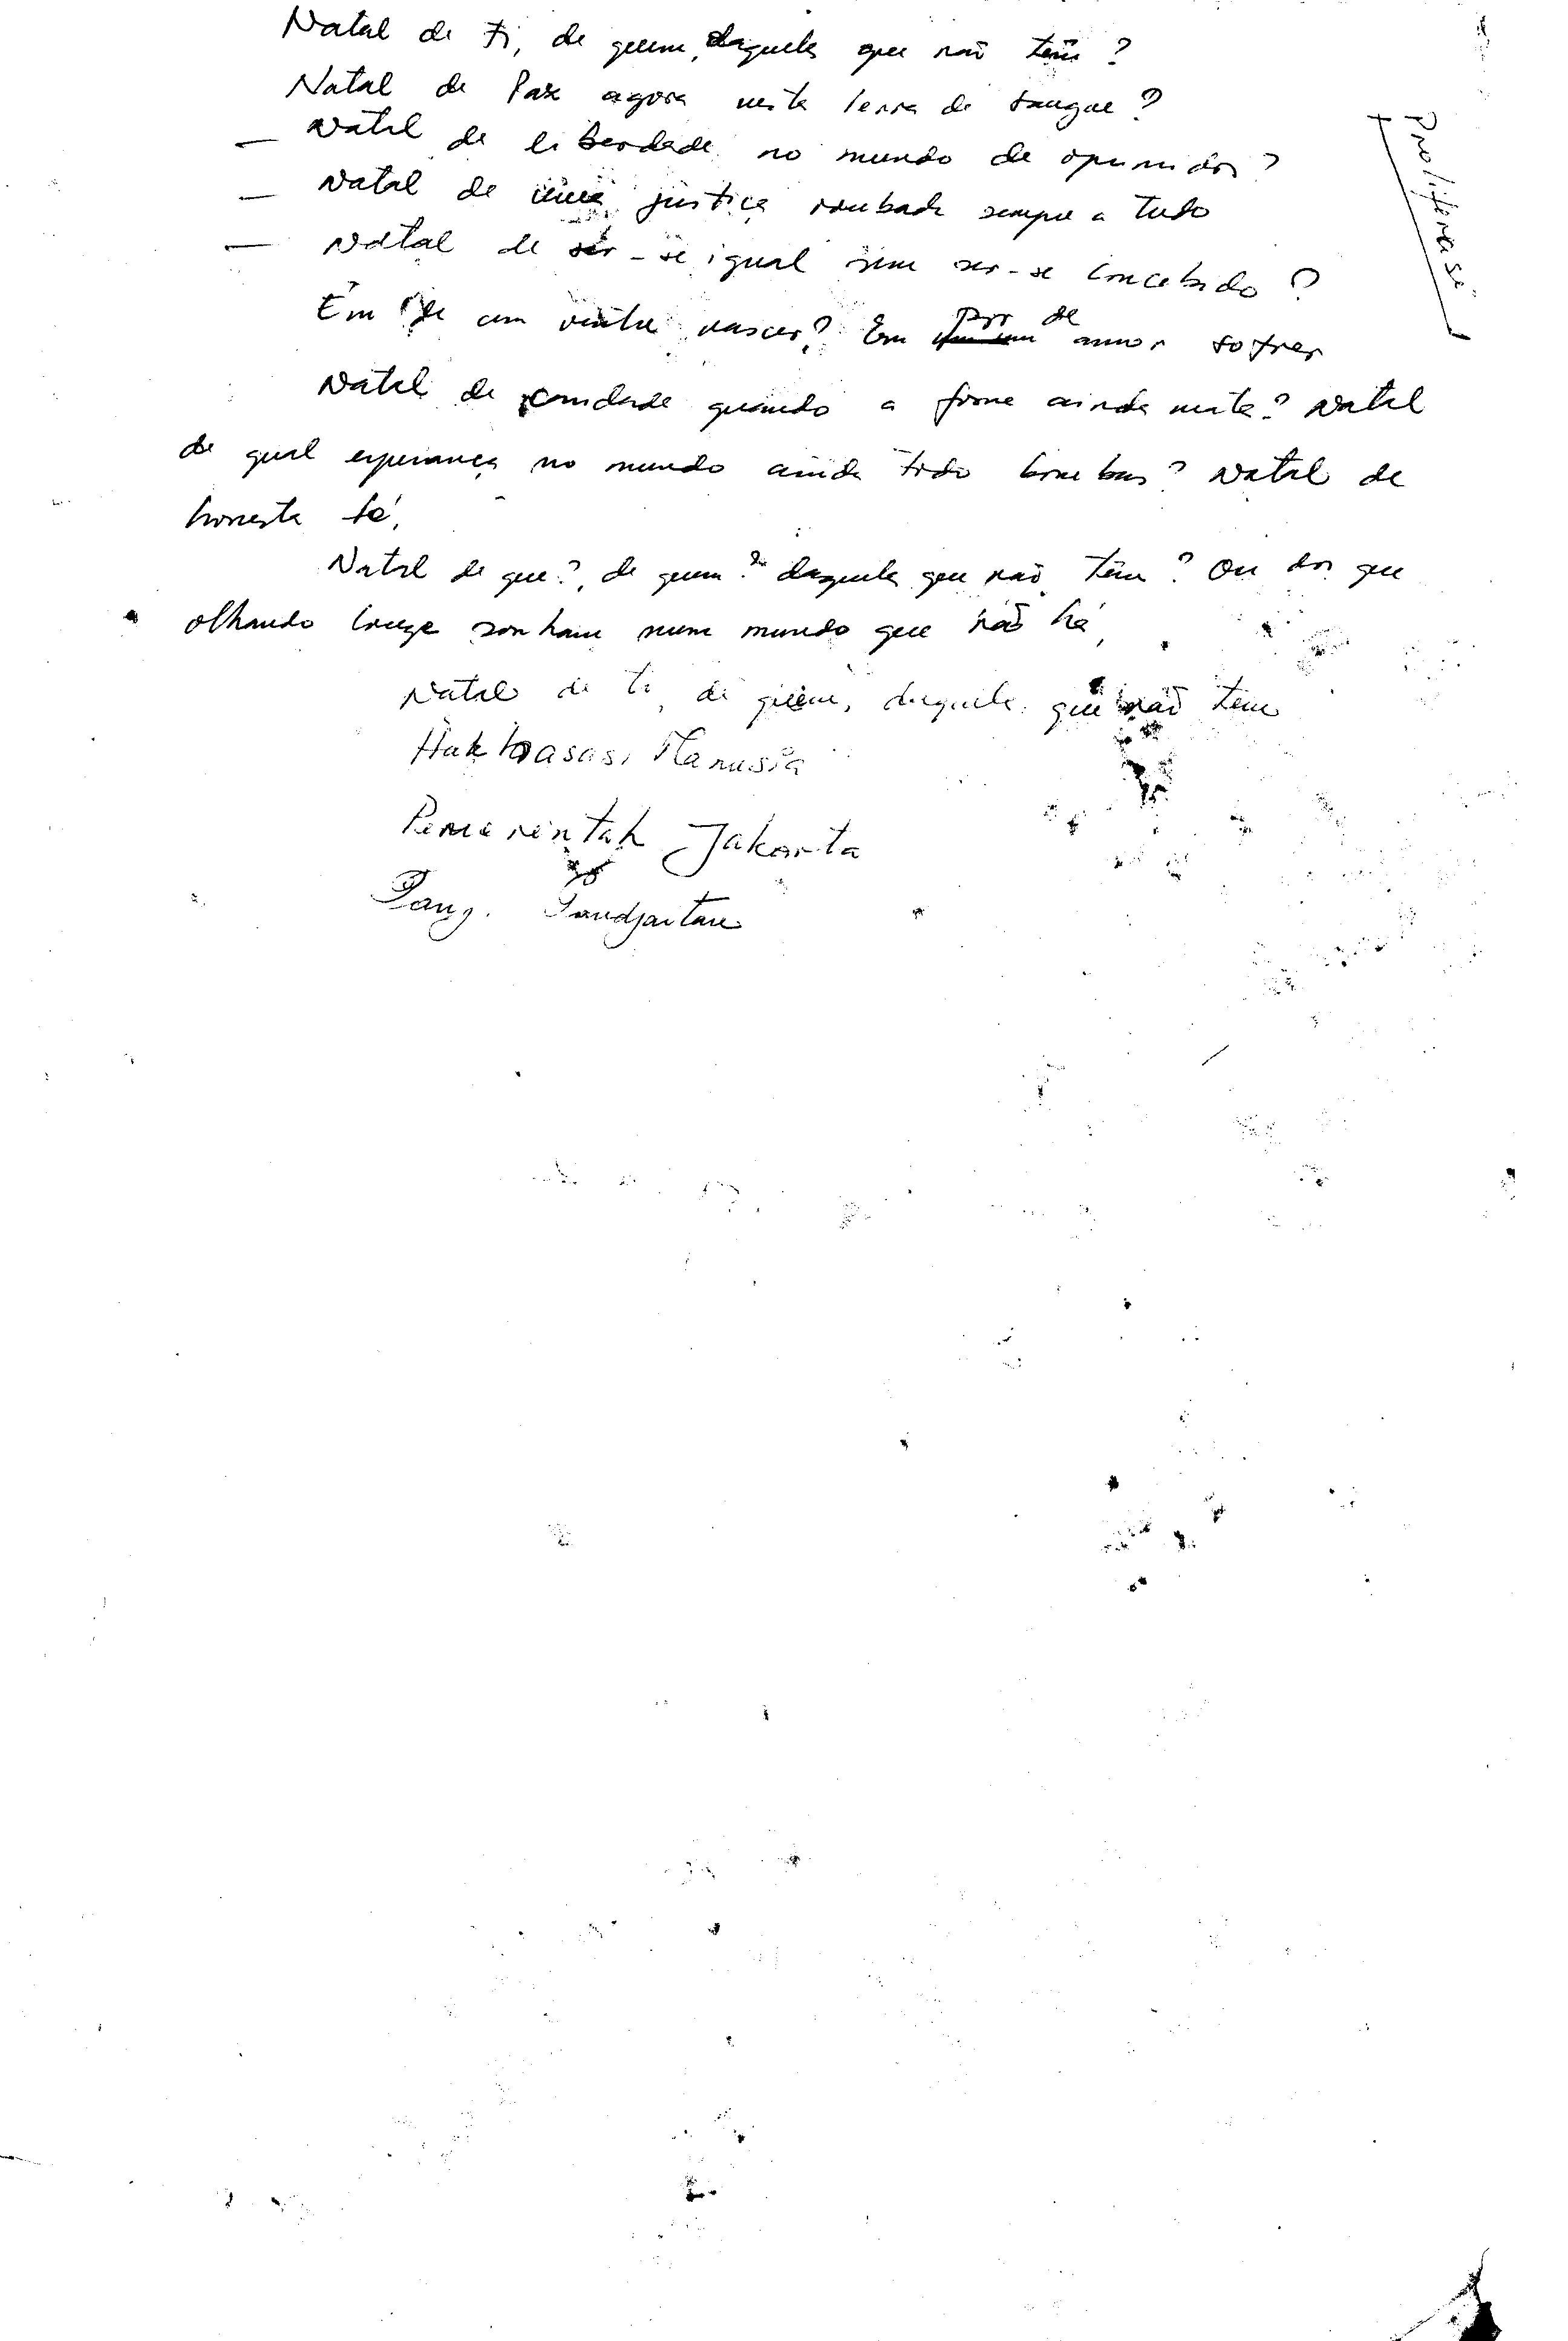 Natal de ti, de quem, daqueles que não têm?
Natal de Paz agora nesta terra de sangue?
— Natal de liberdade no mundo de oprimidos?
— Natal de uma justiça roubada sempre a tudo
— Natal de ser-se igual sem ser-se concebido?
Em de um ventre nascer? Em por de amor sofrer
Natal de caridade quando a fome ainda mata? Natal
de qual esperança no mundo ainda todo bombas? Natal de
honesta fé,
Natal de que?, de quem? daqueles que não têm? Ou dos que
olhando longe sonham num mundo que não há,
Natal de ti, de quem, daqueles que não têm
Hak asasi Manusia
Pemerintah Jakarta
Pang. Pandjaitan
Proliferasi